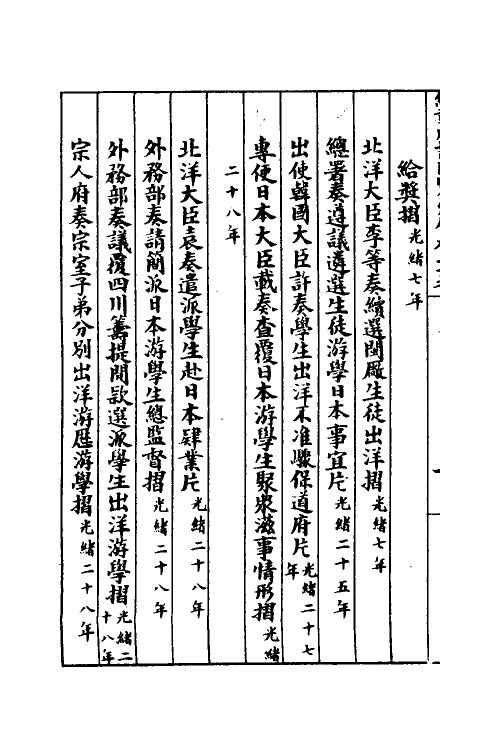 給奬摺光緒七年
北洋大臣李等奏續選閩厰生徒出洋摺光緒七年
總署奏遵議遴選生徒游學日本事宜片光緒二十五年
出使韓國大臣許奏學生出洋不准驟保道府片光緒二十七年
專使日本大臣載奏查覆日本游學生聚衆滋事情形摺光緒
二十八年
北洋大臣袁奏遣派學生赴日本肄業片光緒二十八年
外務部奏請簡派日本游學生總監督摺光緒二十八年
外務部奏議覆四川籌提閒款選派學生出洋游學摺光緒二十八年
宗人府奏宗室子弟分別出洋游歷游學摺光緒二十八年